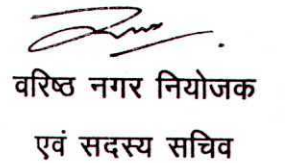 वरिष्ठ नगर नियोजक
एवं सदस्य सचिव